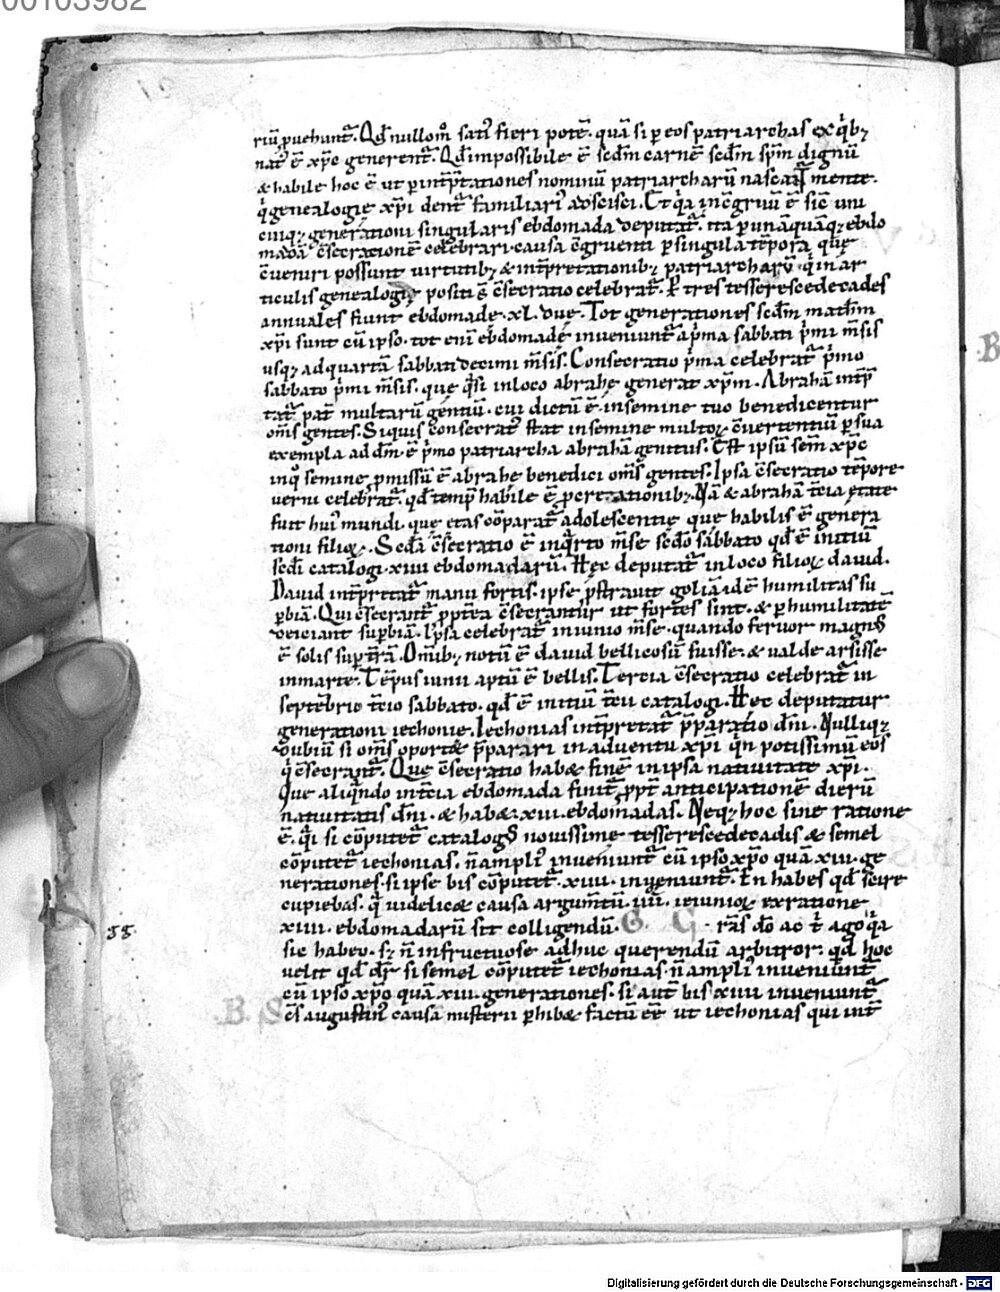 00103982
riū ꝓuehunt̄. Qd̄ nullom° sati᷒ fieri potē. quā si ꝑ eos patriarchas ex q̇bȝ
nat᷒ ē xp̄c generent̄. Qd̄ impossibile ē scd̄m carnē scd̄m sp̄m dignū
& habile hoc ē ut ꝑ int̄p̄tationes nominū patriarcharū nascat̄ ī mente.
q̇ genealogię xp̄i dent̄ familiari᷒ adscisci. Et q̇a incōgruū ē sic uni
cuiqȝ generationi singularis ebdomada deputat̄. ita ꝑ unāquāqȝ ebdo
madā cōsecrationē celebrari. causa cōgruenti ꝑ singula tēpora quę
cōueniri possunt uirtutibȝ & int̄pretationibȝ patriarcharū. q̇ in ar
ticulis genealogię positi s̄ cōsecratio celebrat̄. Ꝑ tres tesserescedecades
annuales fiunt ebdomade .xl. duę. Tot generationes scd̄m math̄m
xp̄i sunt cū ipso. tot enī ebdomadę inueniunt̄ a p̄ma sabbati p̄mi m̄sis
usqȝ ad quartā sabbati decimi m̄sis. Consecratio p̄ma celebrat̄ p̄mo
sabbato p̄mi m̄sis. que q̇si in loco abrahę generat xp̄m. Abrahā int̄p̄
tat̄ pat̄ multarū gentiū. cui dictū ē. in semine tuo benedicentur
om̄s gentes. Si quis consecrat᷒ stat in semine multoꝝ cōuertentiū ꝑ sua
exempla ad dm̄. ē p̄mo patriarcha abrahā genitus. Est ipsū sem̄ xp̄c
in q° semine ꝓmissū ē abrahę benedici om̄s gentes. Ipsa cōsecratio tēpore
uerni celebrat̄. qd̄ temp᷒ habile ē ꝓcreationibȝ. Nā & abrahā t̄cia ętate
fuit hui᷒ mundi. que ętas cōparat̄ adolescentię que habilis ē genera
tioni filioꝝ. Scd̄a cōsecratio ē in q̇rto m̄se scd̄o sabbato qd̄ ē initiū
scd̄i catalogi .xiiii ebdomadarū. Hęc deputat̄ in loco filioꝝ dauid.
Dauid int̄pretat̄ manu fortis. ipse p̄strauit goliā idē humilitas su
ꝑbiā. Qui cōsecrant̄ ꝓpt̄ea cōsecrantur ut fortes sint. & ꝑ humilitatē
deiciant suꝑbiā. Ipsa celebrat̄ in iunio m̄se. quando feruor magn᷒
ē solis suꝑ t̄rā. Om̄ibȝ notū ē dauid bellicosū fuisse. & ualde arsisse
in marte. Tēpus iunii aptū ē bellis. Tercia cōsecratio celebrat̄ in
septēbrio t̄cio sabbato. qd̄ ē initiū t̄cii catalogi. Hęc deputatur
generationi iechonię. Iechonias int̄pretat̄ p̄paratio dn̄i. Nulliqȝ
dubiū si om̄s oportet p̄parari in aduentu xp̄i q̇n potissimū eos
q̇ cōsecrant̄. Que cōsecratio habet finē in ipsa natiuitate xp̄i.
Que aliq̇ndo in t̄cia ebdomada finit̄ ꝓpt̄ anticipationē dierū
natiuitatis dn̄i. & habet xiii. ebdomadas. Neqȝ hoc sine ratione
ē. q̇i si cōputet̄ catalog᷒ nouissime tesserescedecadis & semel
cōputet̄ iechonias. n̄ ampli᷒ inueniunt̄ cū ipso xp̄o quā xiii. ge
nerationes. si ipse bis cōputet̄ .xiiii. inueniunt̄. En habes qd̄ scire
cupiebas. q̇ uidelicet causa argum̄tū .iiii. ieiunioꝝ ex ratione
xiiii. ebdomadarū sit colligendū. G. G. rās dō ac t̄ ago q̇a
sic habeo. sȝ n̄ infructuose adhuc querendū arbitror. qd̄ hoc
uelit qd̄ dr̄ si semel cōputet̄ iechonias. n̄ ampli᷒ inueniunt̄
cū ipso xp̄o quā xiii. generationes. si aut̄ bis xiiii inueniunt̄
S̄cs augustin᷒ causā misterii ꝑhibet factū ēē ut iechonias qui int̄
B. S.
B
Digitalisierung gefördert durch die Deutsche Forschungsgemeinschaft - DFG